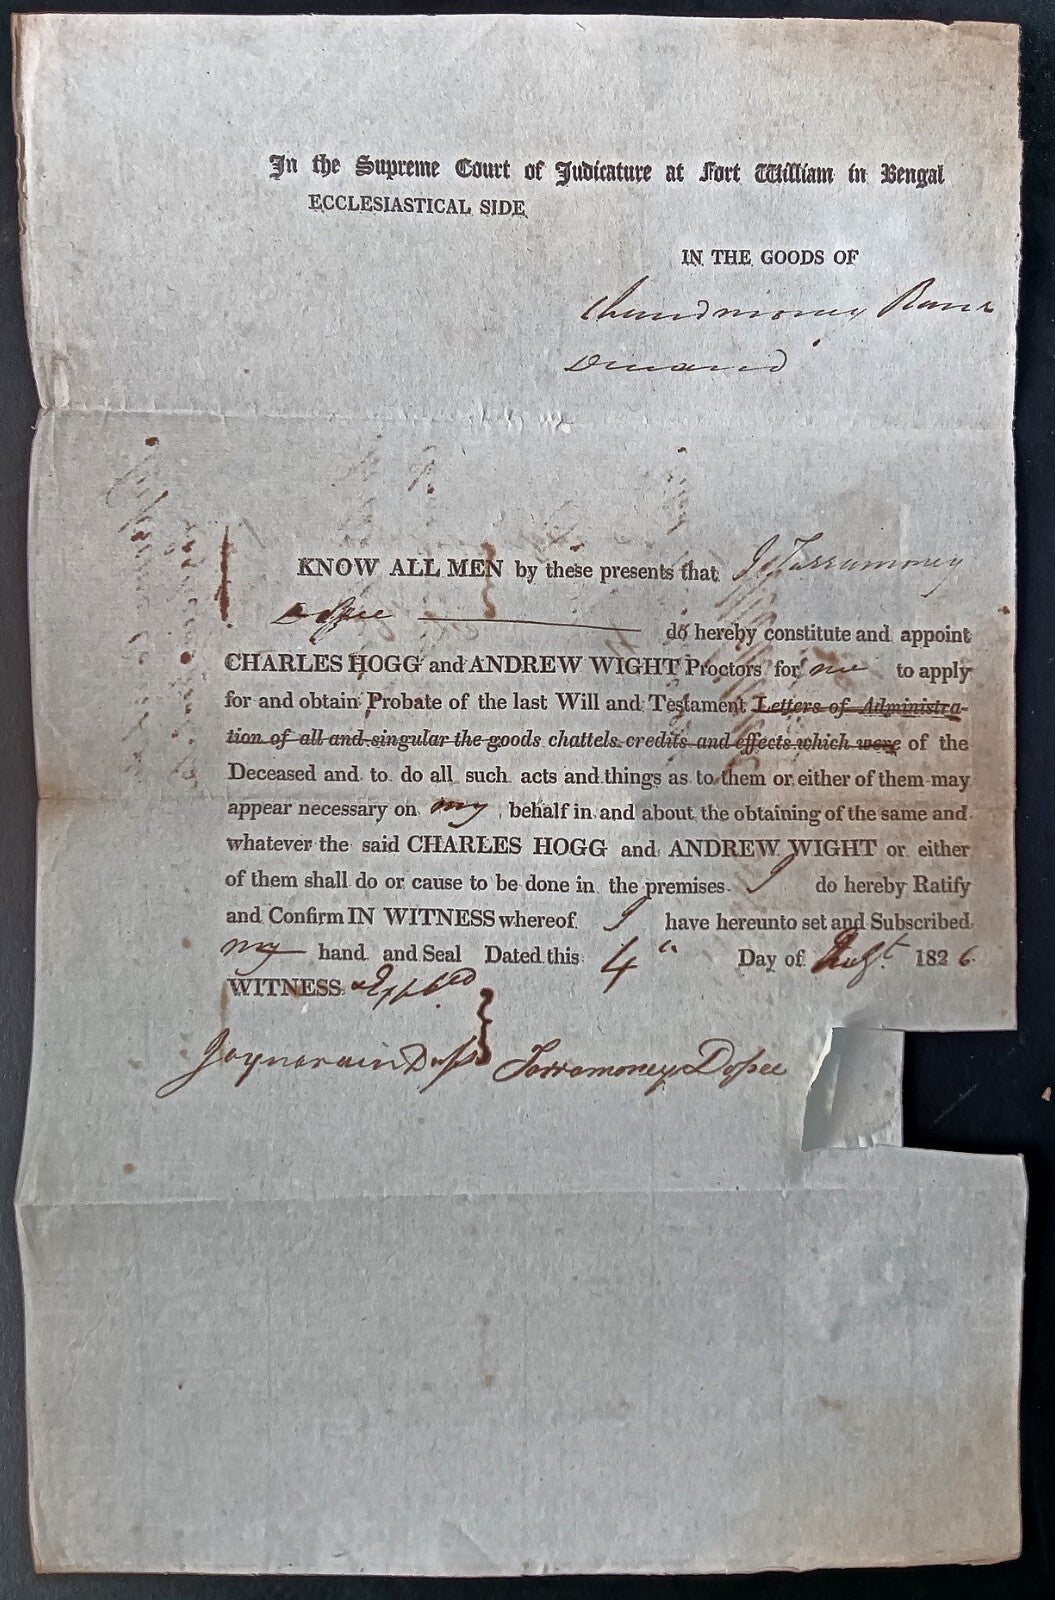 In the Supreme Court of Judicature at Fort William in Bengal
ECCLESIASTICAL SIDE
IN THE GOODS OF
KNOW ALL MEN by these presents that I Tarramoney
Dossee do hereby constitute and appoint
CHARLES HOGG and ANDREW WIGHT Proctors for me to apply
for and obtain Probate of the last Will and Testament Letters of Administra-
tion of all and singular the goods chattels credits and effects which were of the
Deceased and to do all such acts and things as to them or either of them may
appear necessary on my behalf in and about the obtaining of the same and
whatever the said CHARLES HOGG and ANDREW WIGHT or either
of them shall do or cause to be done in the premises I do hereby Ratify
and Confirm IN WITNESS whereof I have hereunto set and Subscribed
my hand and Seal Dated this 4th Day of Augt. 1826.
WITNESS
Joynarain Doss Tarramoney Dossee